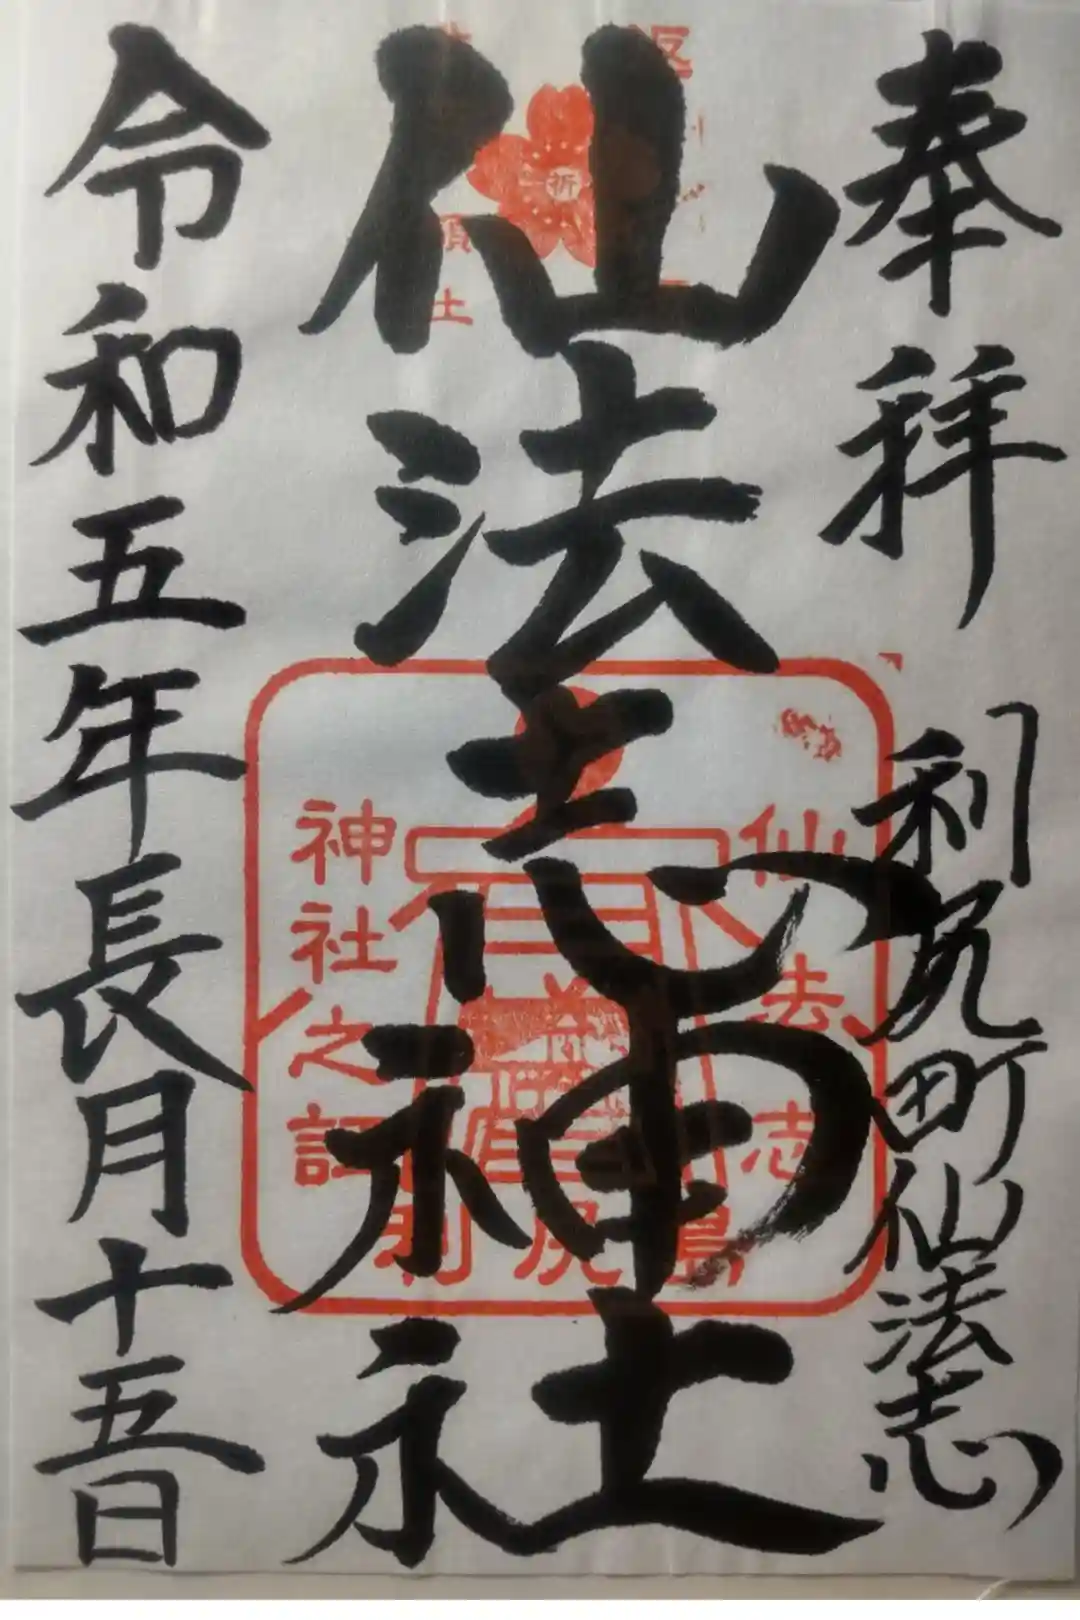 奉拝
利尻町仙法志
仙法志神社
令和五年長月十五日
祈
仙法志
神社之証
利尻島